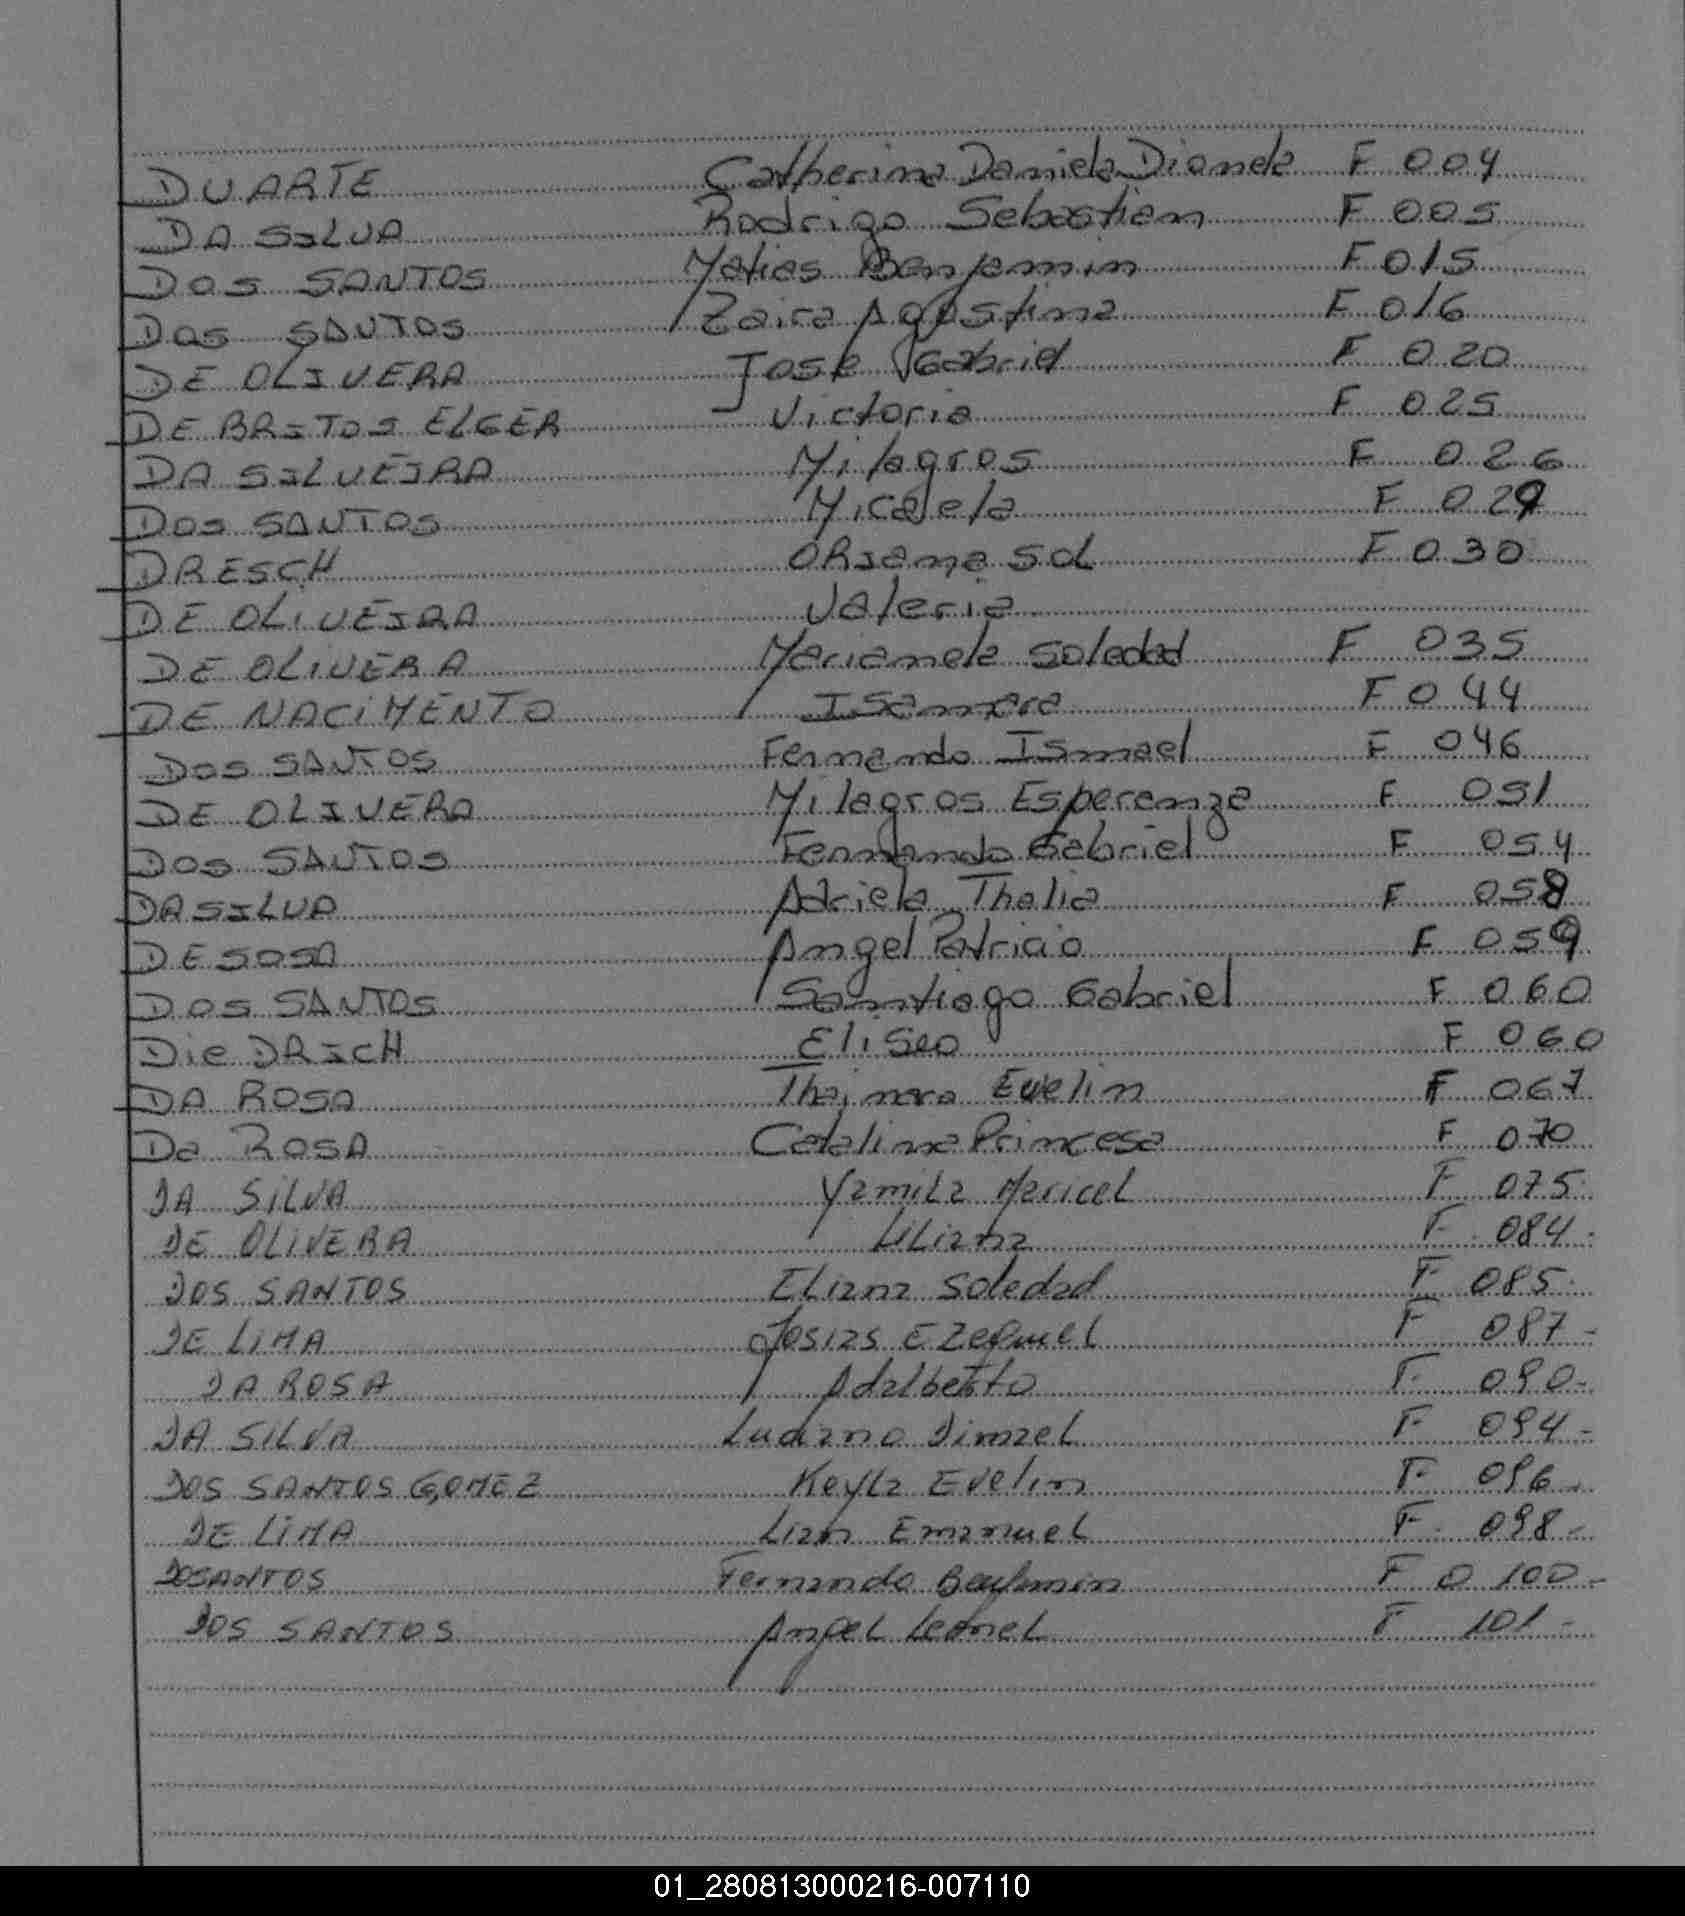 DUARTE Catherina Daniela Dianela F 004
DA SILVA Rodrigo Sebastian F 005
DOS SANTOS Matias Benjamin F 015
DOS SANTOS Zaira Agostina F 016
DE OLIVERA Jose Gabriel F 020
DE BRITOS ELGER Victoria F 025
DA SILVEIRA Milagros F 026
DOS SANTOS Micaela F 029
DRESCH ORiana Sol F 030
DE OLIVEIRA Valeria
DE OLIVERA Marianela Soledad F 035
DE NACIMENTO Isamara F 044
DOS SANTOS Fernando Ismael F 046
DE OLIVERA Milagros Esperanza F 051
DOS SANTOS Fernando Gabriel F 054
DA SILVA Adriela Thalia F 058
DE SOSA Angel Patricio F 059
DOS SANTOS Santiago Gabriel F 060
Die DRICH Eliseo F 060
DA ROSA Thainara Evelin F 067
Da ROSA Catalina Princesa F 070
DA SILVA Yamila Maricel F 075
DE OLIVERA Liliana F 084
DOS SANTOS Eliana Soledad F 085
DE LIMA Josias Ezequiel F 087
DA ROSA Adalberto F 090
DA SILVA Luciano Dimael F 094
DOS SANTOS GOMEZ Keyla Evelin F 096
DE LIMA Lian Emanuel F 098
DOSANTOS Fernando Benjamin F 0 100
DOS SANTOS Angel Leonel F 101
01_280813000216-007110